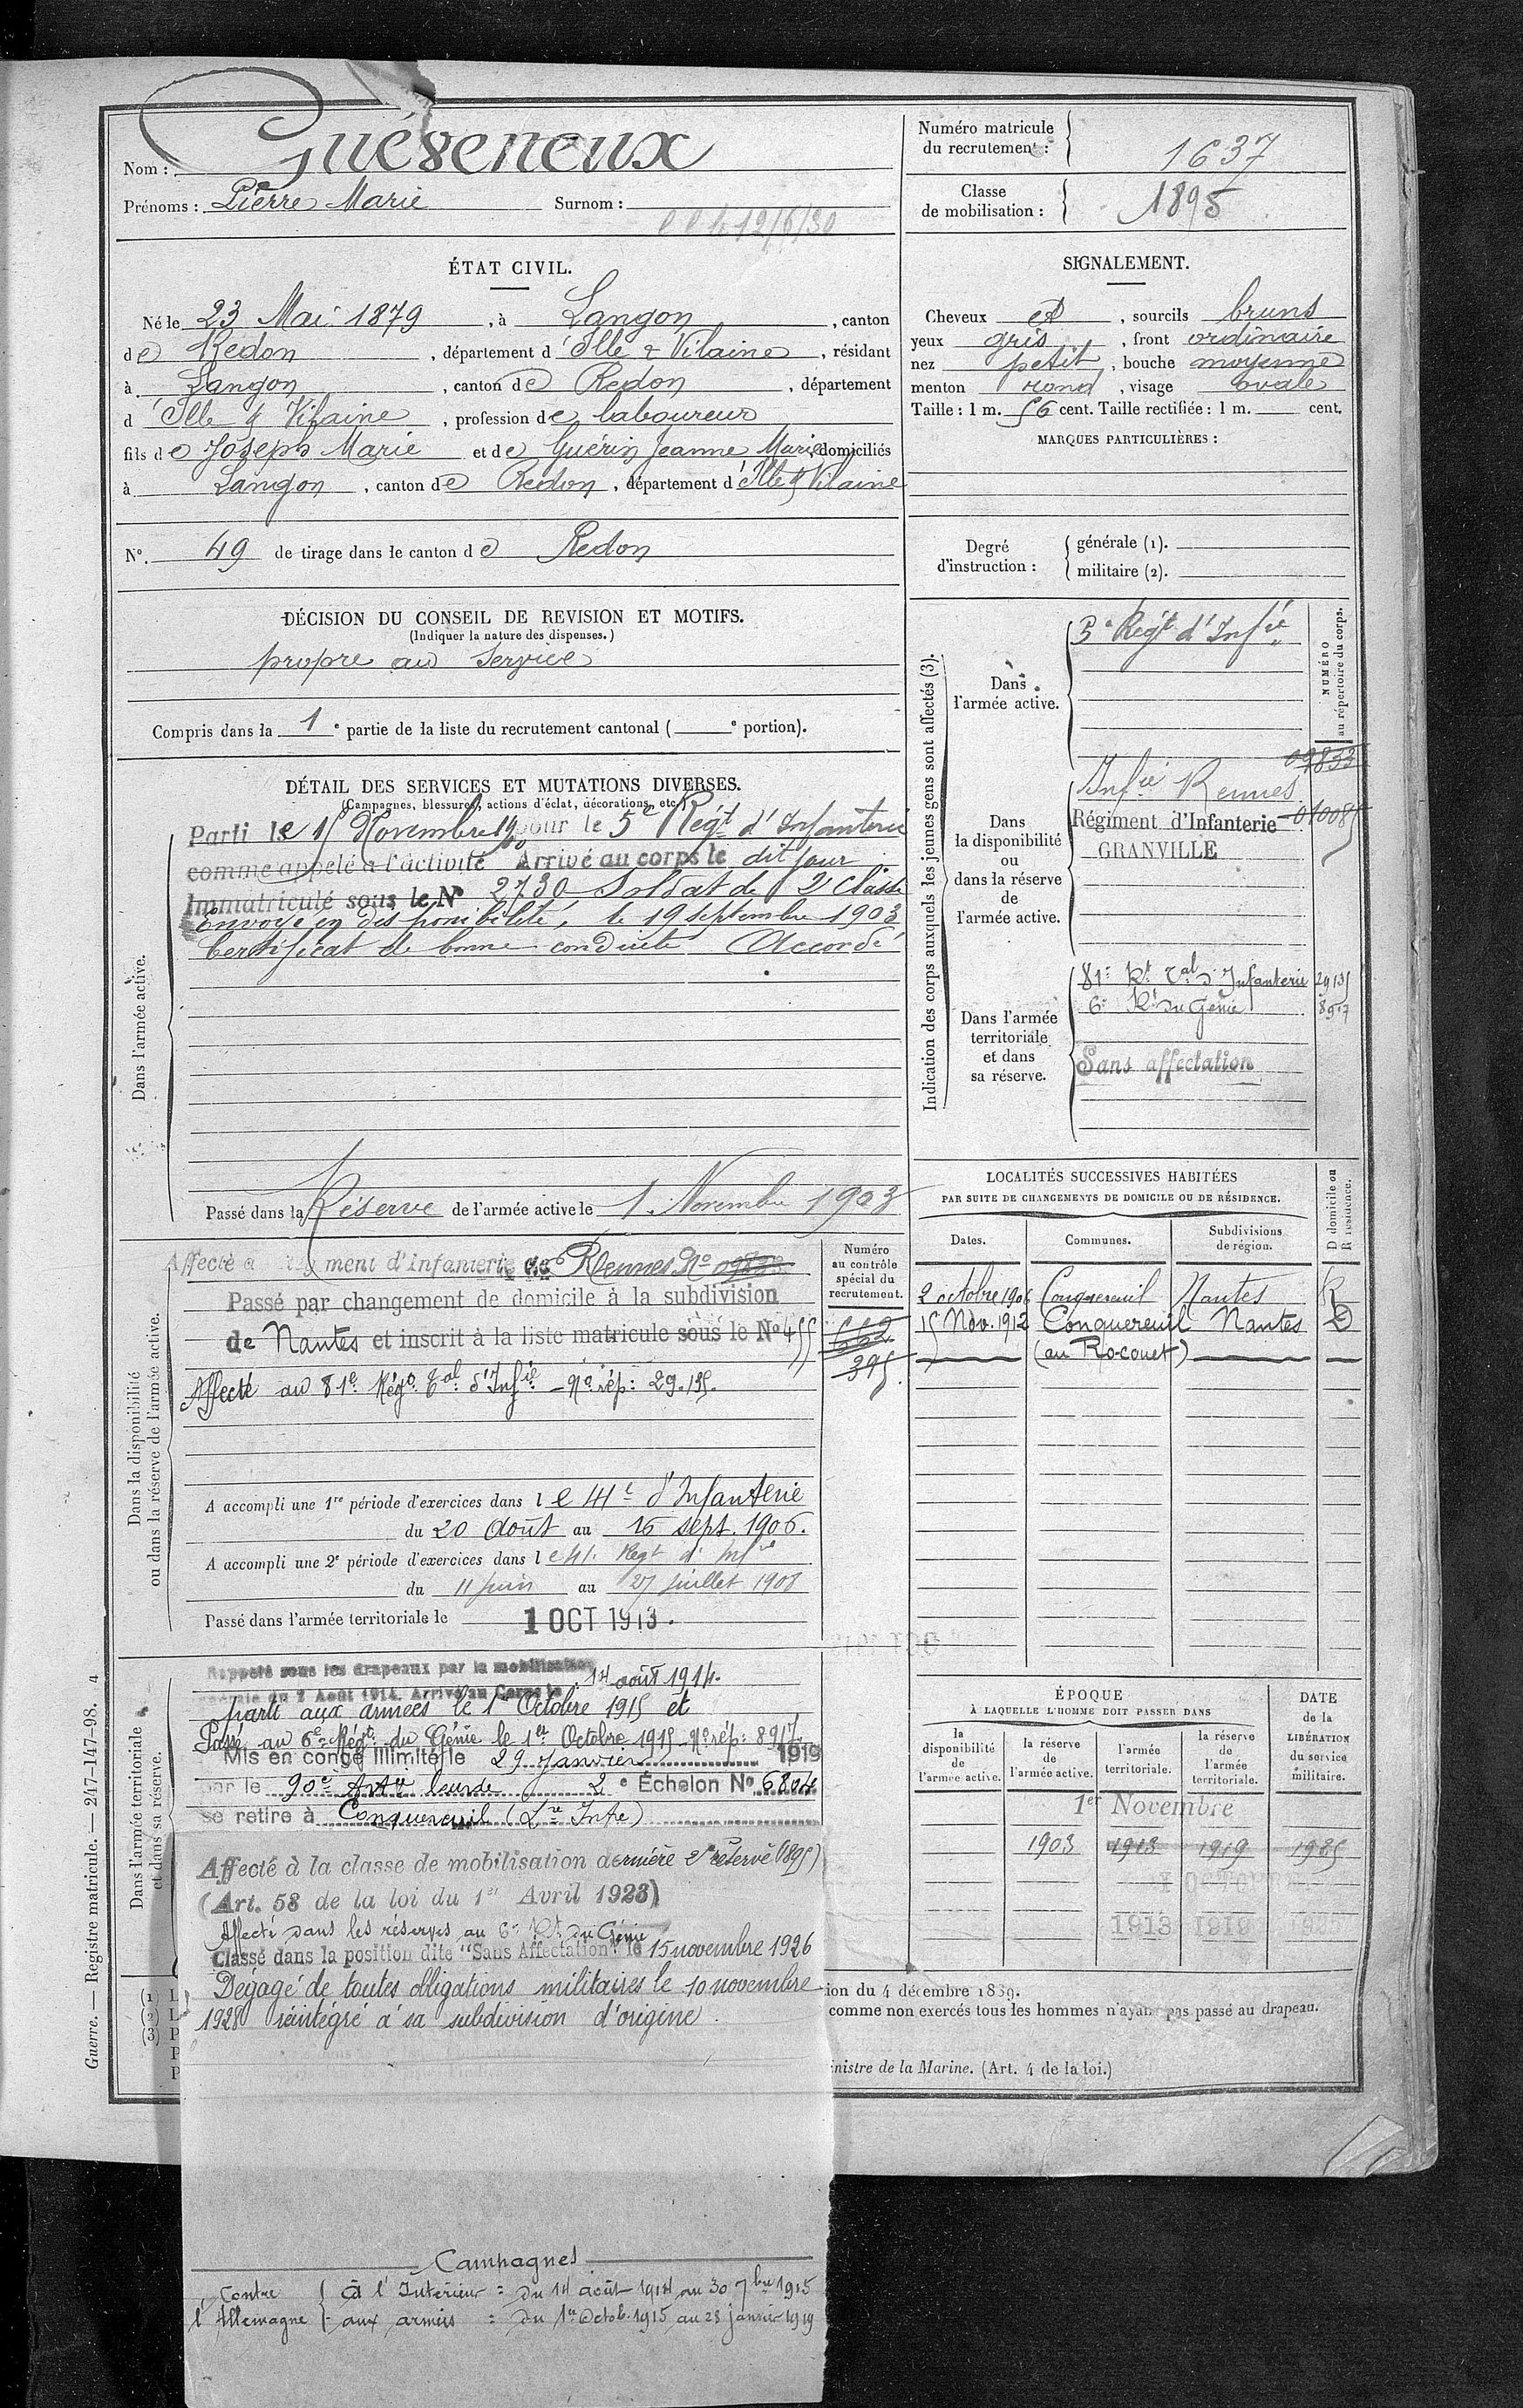 Nom : Guéseneux
Prénoms : Pierre Marie Surnom :
12/6/30
ÉTAT CIVIL.
Né le 23 Mai 1879, à Langon, canton
de Redon, département d'Ille & Vilaine, résidant
à Langon, canton de Redon, département
d'Ille & Vilaine, profession de laboureur
fils de Joseph Marie et de Guérin Jeanne Marie, domiciliés
à Langon, canton de Redon, département d'Ille & Vilaine
N°. 49 de tirage dans le canton de Redon
DÉCISION DU CONSEIL DE REVISION ET MOTIFS.
(Indiquer la nature des dispenses.)
propre au service
Compris dans la 1e partie de la liste du recrutement cantonal ( e portion).
DÉTAIL DES SERVICES ET MUTATIONS DIVERSES.
(Campagnes, blessures, actions d'éclat, décorations, etc.)
Dans l'armée active.
Parti le 15 Novembre 1900 pour le 5e Régt d'Infanterie
comme appelé à l'activité Arrivé au corps le dit jour
Immatriculé sous le N° 2730 Soldat de 2e classe
Envoyé en disponibilité, le 19 septembre 1903
Certificat de bonne conduite Accordé
Passé dans la Réserve de l'armée active le 1 Novembre 1903
Dans la disponibilité
ou dans la réserve de l'armée active.
Affecté a Régiment d'infanterie de Rennes No 09833
Passé par changement de domicile à la subdivision
de Nantes et inscrit à la liste matricule sous le N° 455
Affecté au 81e Régt Tal d'Infie - No rép: 29.135.
Numéro
au contrôle
spécial du
recrutement.
395
A accompli une 1re période d'exercices dans le 41e d'Infanterie
du 20 Août au 16 sept. 1906.
A accompli une 2e période d'exercices dans le 41e Regt d'Infie
du 11 juin au 27 juillet 1908
Passé dans l'armée territoriale le 1 OCT 1913.
Dans l'armée territoriale
et dans sa réserve.
Rappelé sous les drapeaux par la mobilisation
générale du 2 Août 1914. Arrivé au Corps le 14 août 1914.
parti aux armées le 1er Octobre 1915 et
Passé au 6e Régt du Génie le 1er Octobre 1915 - No rép: 8917.
Mis en congé illimité le 29 Janvier 1919
par le 90e Artie lourde 2e Échelon N° 6804
se retire à Conquereuil (Lre Infre)
Affecté à la classe de mobilisation dernière 2e réserve (1895)
(Art. 58 de la loi du 1er Avril 1923)
Affecté dans les réserves au 6e Rt du Génie
Classé dans la position dite "Sans Affectation" le 15 novembre 1926
Dégagé de toutes obligations militaires le 10 novembre
1928 réintégré à sa subdivision d'origine.
Campagnes
Contre
l'Allemagne
à l'Intérieur : du 14 août 1914 au 30 7bre 1915
aux armées : du 1er Octob. 1915 au 28 janvier 1919
Numéro matricule
du recrutement : 1637
Classe
de mobilisation : 1895
SIGNALEMENT.
Cheveux et, sourcils bruns
yeux gris, front ordinaire
nez petit, bouche moyenne
menton rond, visage ovale
Taille : 1 m. 56 cent. Taille rectifiée : 1 m. cent.
MARQUES PARTICULIÈRES :
Degré
d'instruction :
générale (1).
militaire (2).
Indication des corps auxquels les jeunes gens sont affectés (3).
NUMÉRO
au répertoire du corps.
Dans
l'armée active.
5e Régt d'Infie
Dans
la disponibilité
ou
dans la réserve
de
l'armée active.
Infie Rennes 09833
Régiment d'Infanterie 010085
GRANVILLE
Dans l'armée
territoriale
et dans
sa réserve.
81e Rt Tal d'Infanterie 29135
6e Rt du Génie 8917
Sans affectation
LOCALITÉS SUCCESSIVES HABITÉES
PAR SUITE DE CHANGEMENTS DE DOMICILE OU DE RÉSIDENCE.
Dates. Communes. Subdivisions
de région.
D domicile ou
R résidence.
2 octobre 1906 Conquereuil Nantes R
15 Nov. 1912 Conquereuil Nantes D
(au Rocouet)
ÉPOQUE
À LAQUELLE L'HOMME DOIT PASSER DANS
la
disponibilité
de
l'armée active.
la réserve
de
l'armée active.
l'armée
territoriale.
la réserve
de
l'armée
territoriale.
DATE
de la
LIBÉRATION
du service
militaire.
1er Novembre
1903 1913 1919 1925
1 OCTOBRE
1913 1919 1925
(1) L
(2) L
(3) P
P
P
ion du 4 décembre 1889.
comme non exercés tous les hommes n'ayant pas passé au drapeau.
inistre de la Marine. (Art. 4 de la loi.)
Guerre. — Registre matricule. — 247-147-98. 4